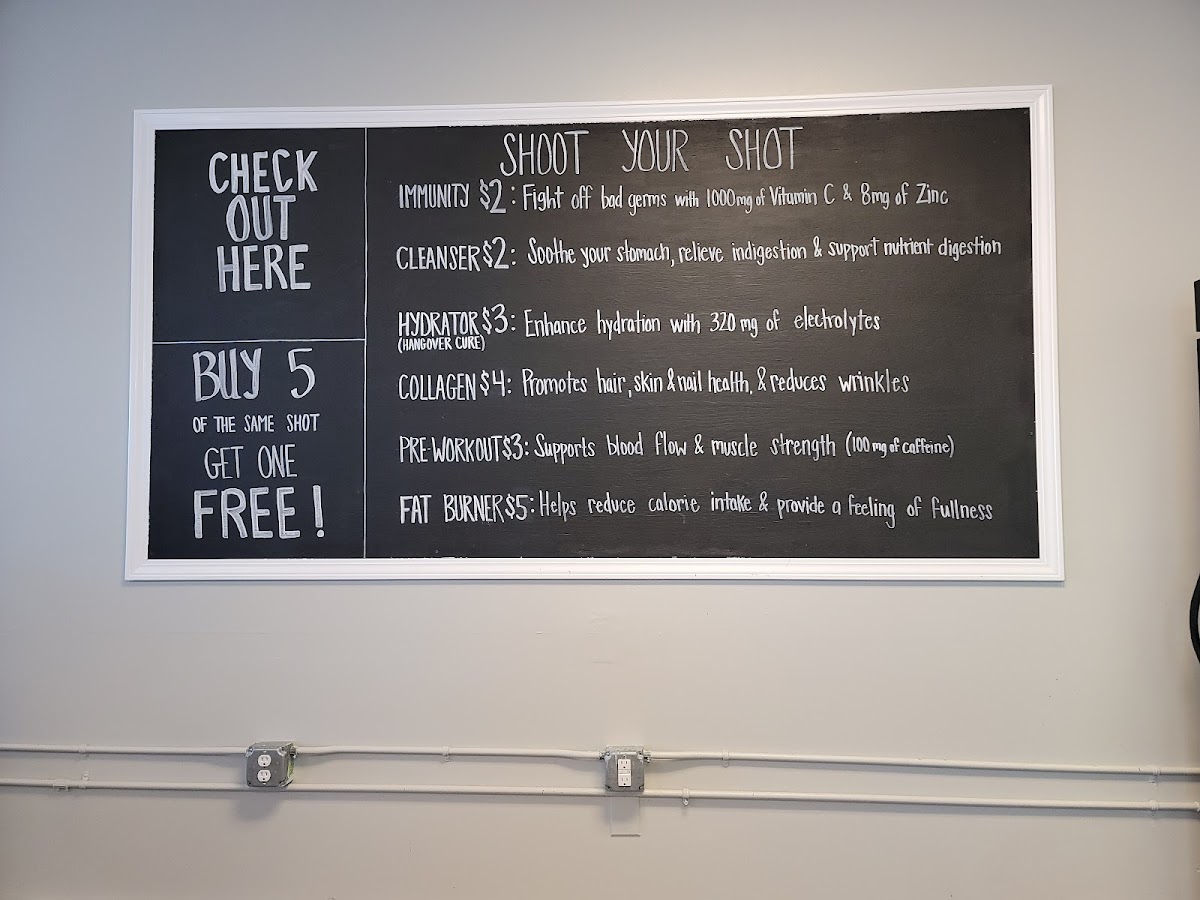 CHECK
OUT
HERE
BUY 5
OF THE SAME SHOT
GET ONE
FREE!
SHOOT YOUR SHOT
IMMUNITY $2: Fight off bad germs with 1000mg of Vitamin C & 8mg of Zinc
CLEANSER $2: Soothe your stomach, relieve indigestion & support nutrient digestion
HYDRATOR $3: Enhance hydration with 320 mg of electrolytes
(HANGOVER CURE)
COLLAGEN $4: Promotes hair, skin & nail health, & reduces wrinkles
PRE-WORKOUT $3: Supports blood flow & muscle strength (100 mg of caffeine)
FAT BURNER $5: Helps reduce calorie intake & provide a feeling of fullness